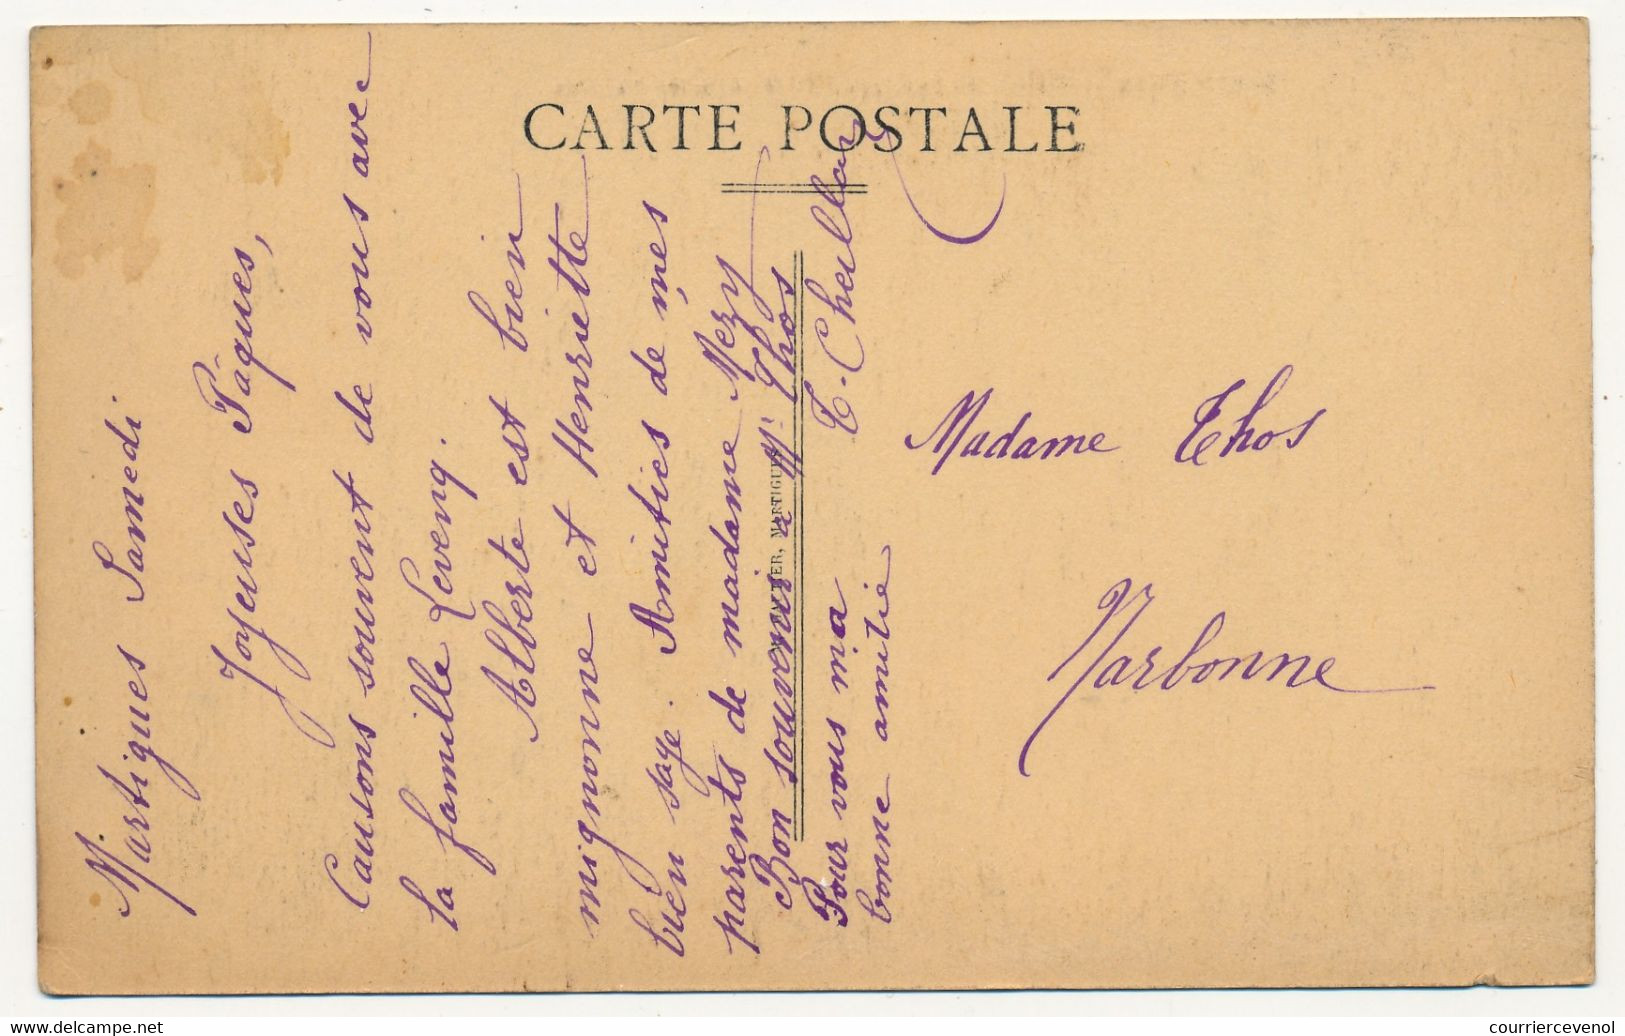 CARTE POSTALE
Martigues Samedi
Joyeuses Pâques,
Causons souvent de vous avec
la famille Leveng.
Alberte est bien
mignonne et Henriette
bien sage. Amitiés de mes
parents de madame Mery
Bon souvenir a Mr Thos
Pour vous ma
bonne amitié
MARTIGUES
Madame Thos
Narbonne
www.delcampe.net
courriercevenol